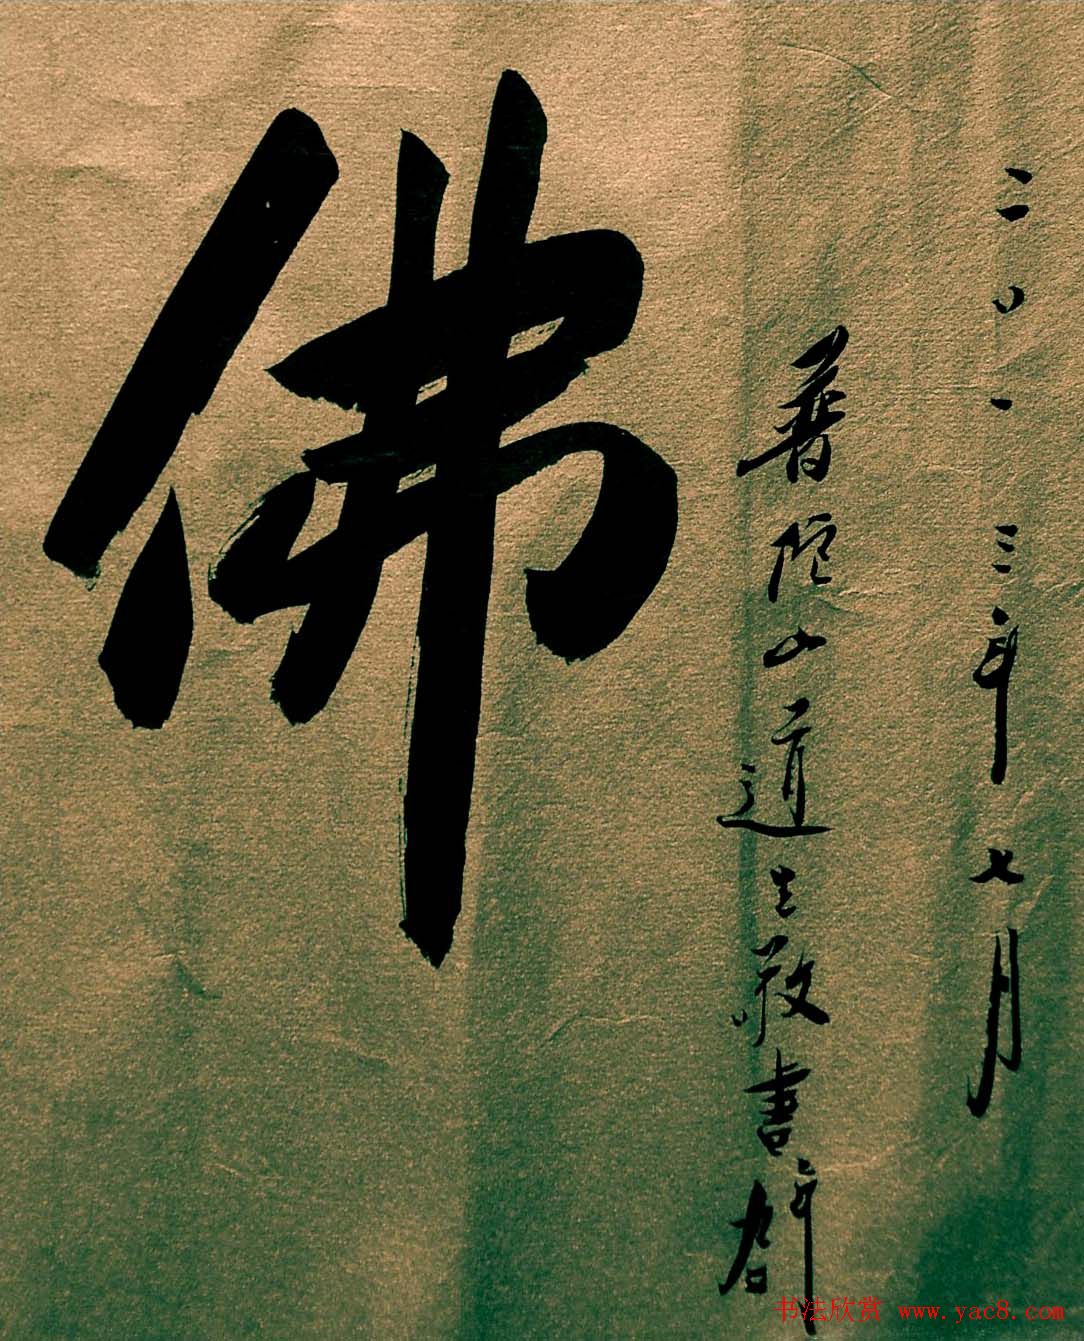 二〇一三年七月
普陀山道生敬書
佛
书法欣赏 www.yac8.com